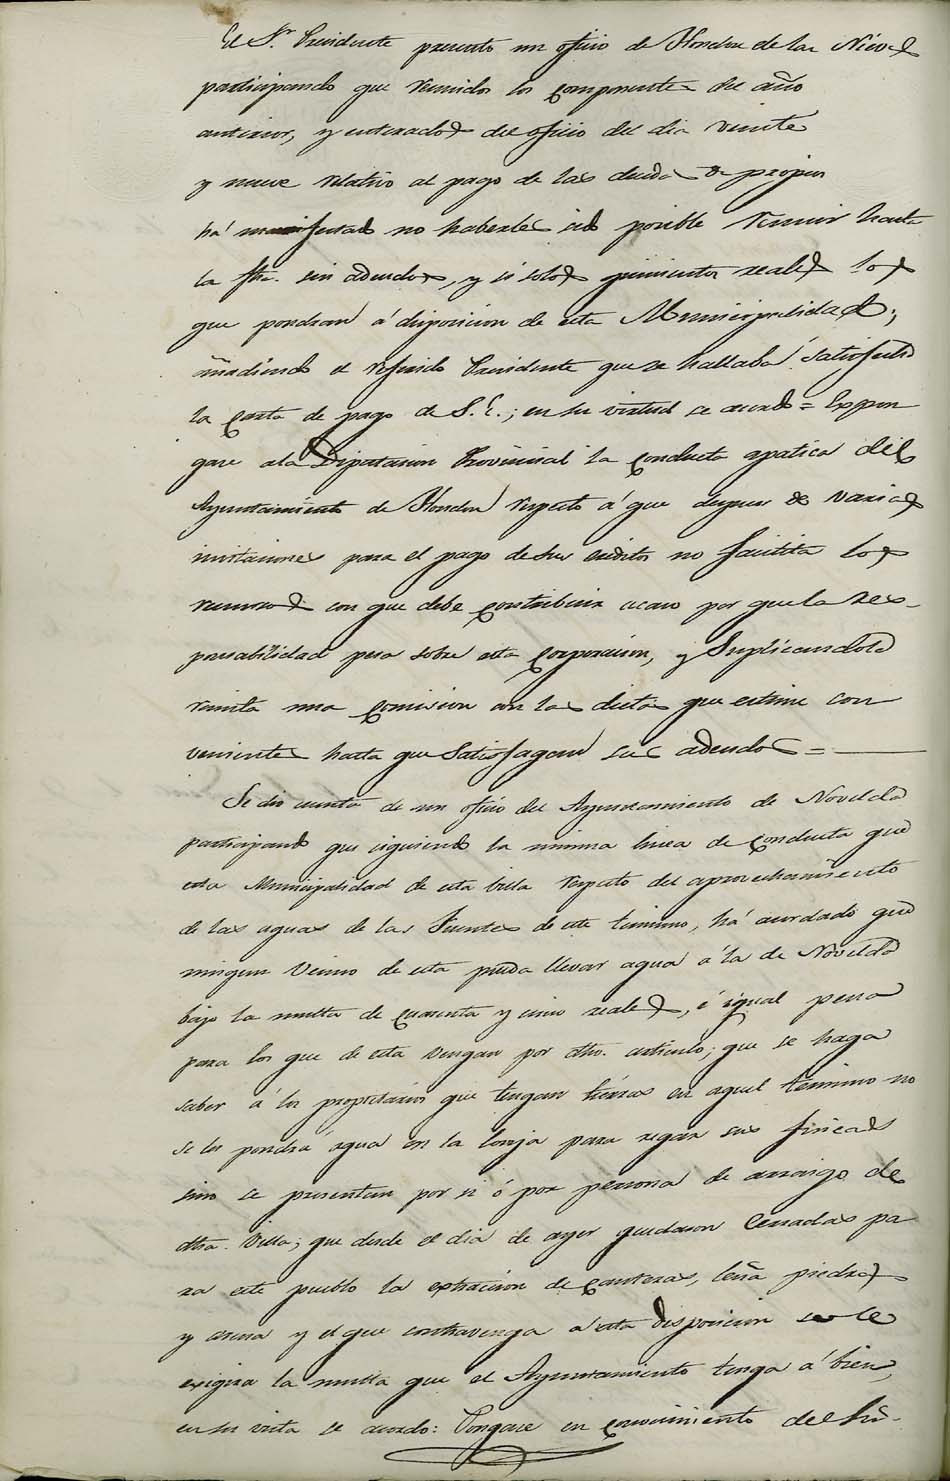 El Sr. Presidente presento un oficio de Hondon de las Nieves
participando que reunidos los componentes del año
anterior, y enterados del oficio del dia veinte
y nueve relativo al pago de las deudas de propios
há manifestado no haberles sido posible reunir hasta
la fha. sin adeudos, y si solos quinientos reales los
que pondran á disposicion de esta Municipalidad;
añadiendo el referido Presidente que se hallaba satisfecho
la carta de pago de S. E.; en su virtud se acordó = Expon
gase a la Diputacion Provincial la conducta apatica del
Ayuntamiento de Hondon respecto á que despues de varias
invitaciones para el pago de sus creditos no facilita los
recursos con que debe contribuir acaso por que la res-
ponsabilidad pesa sobre esta Corporacion, y Suplicandola
remita una comision con las dietas que estime con
venientes hasta que Satisfagan sus adeudos =
Se dio cuenta de un oficio del Ayuntamiento de Novelda
participando que siguiendo la misma linea de conducta que
esta Municipalidad de esta billa respecto del aprovechamiento
de las aguas de las Fuentes de este termino, há acordado que
ningun Vecino de esta pueda llevar agua á la de Novelda
bajo la multa de cuarenta y cinco reales, é igual pena
para los que de esta vengan por dho. articulo; que se haga
saber á los propietarios que tengan tierras en aquel termino no
se les pondrá agua en la lonja para regar sus fincas
sino se presentan por si ó por persona de arraigo de
dha. Villa; que desde el dia de ayer quedaron Cerradas pa
ra este pueblo la extracion de canteras, leña piedras
y arena y el que contravenga á esta disposicion se le
exigira la multa que el Ayuntamiento tenga á bien,
en su vista se acordo: Pongase en conocimiento del Sr.